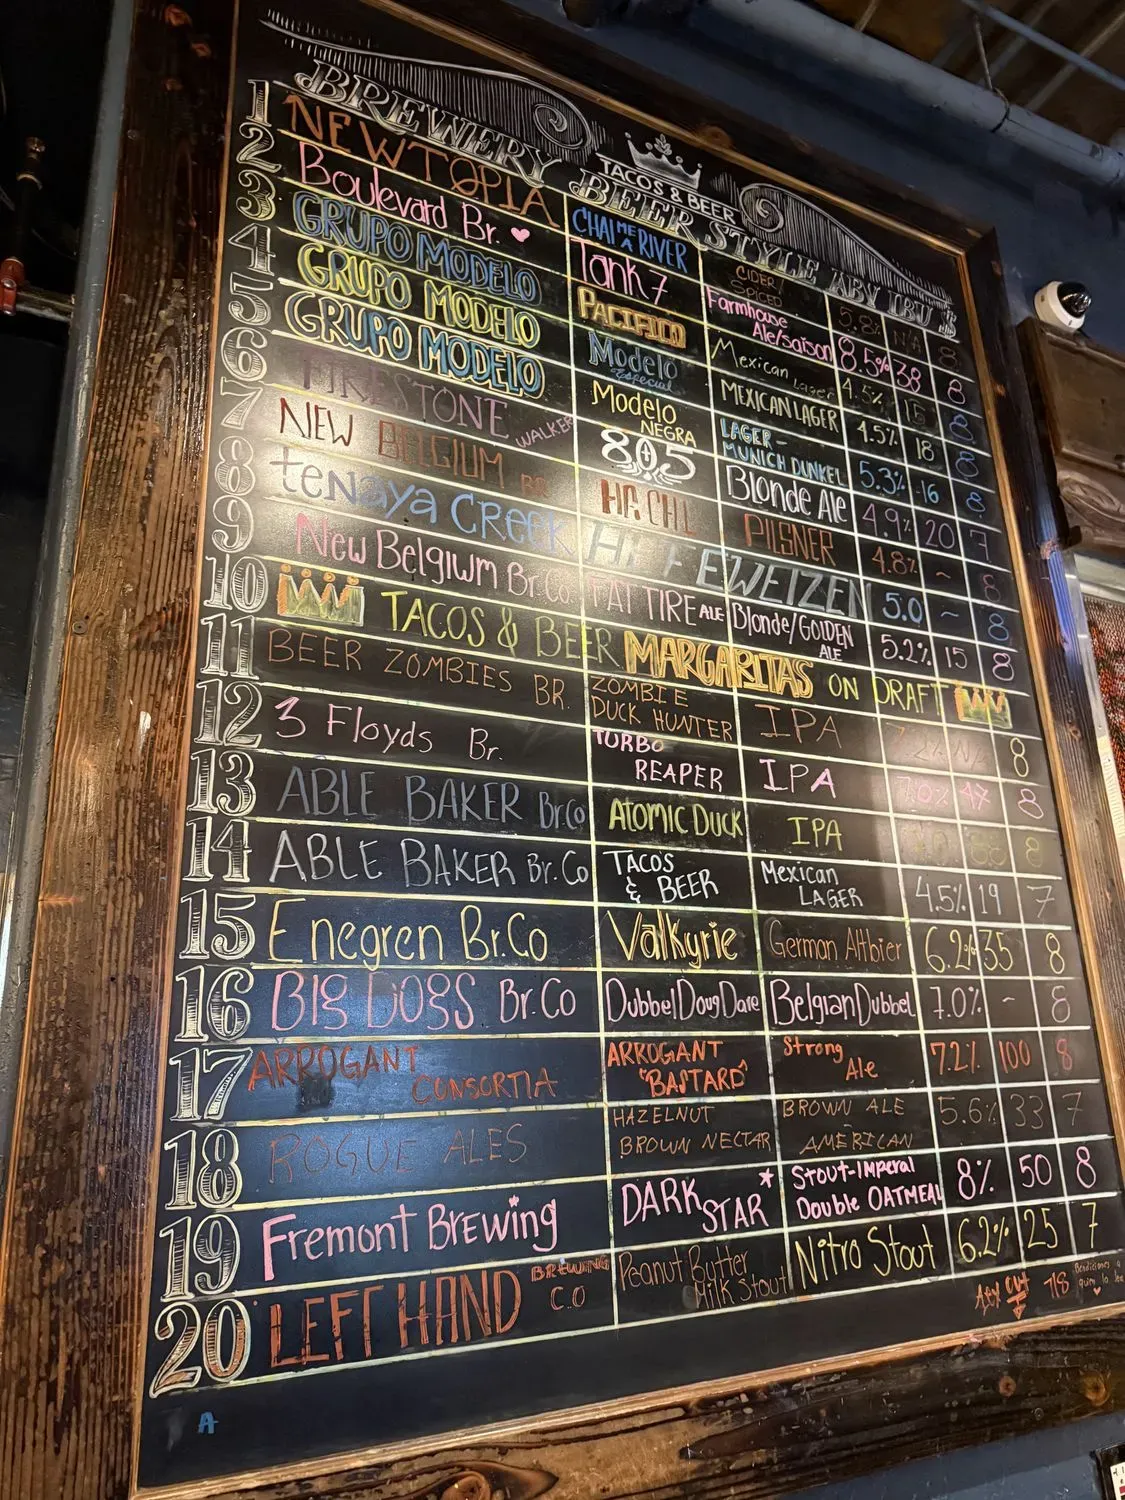 TACOS & BEER
BREWERY BEER STYLE ABV IBU $
1 NEWTOPIA CHAI ME A RIVER CIDER/ SPICED 5.8% N/A 8
2 Boulevard Br. Tank 7 Farmhouse Ale/Saison 8.5% 38 8
3 GRUPO MODELO PACIFICO Mexican Lager 4.5% 8
4 GRUPO MODELO Modelo Especial MEXICAN LAGER 4.5% 18 8
5 GRUPO MODELO Modelo NEGRA LAGER - MUNICH DUNKEL 5.3% 16 8
6 FIRESTONE WALKER 805 Blonde Ale 4.9% 20 7
7 NEW BELGIUM BR PILSNER 4.8% ~ 8
8 tenaya Creek HEFEWEIZEN 5.0 - 8
9 New Belgium Br.Co. FAT TIRE ALE Blonde/GOLDEN ALE 5.2% 15 8
10 TACOS & BEER MARGARITAS ON DRAFT
11 BEER ZOMBIES BR. ZOMBIE DUCK HUNTER IPA N/A 8
12 3 Floyds Br. TURBO REAPER IPA 47 8
13 ABLE BAKER Br.Co ATOMIC DUCK IPA 8
14 ABLE BAKER Br.Co TACOS & BEER Mexican LAGER 4.5% 19 7
15 Enegren Br.Co Valkyrie German Altbier 6.2% 35 8
16 BIG DOGS Br.Co Dubbel Doug Dare Belgian Dubbel 7.0% - 8
17 ARROGANT CONSORTIA ARROGANT "BASTARD" Strong Ale 7.2% 100 8
18 ROGUE ALES HAZELNUT BROWN NECTAR BROWN ALE AMERICAN 5.6% 33 7
19 Fremont BREWING DARK STAR* Stout-Imperal Double OATMEAL 8% 50 8
20 LEFT HAND BREWING C.O Peanut Butter Milk Stout Nitro Stout 6.2% 25 7
A